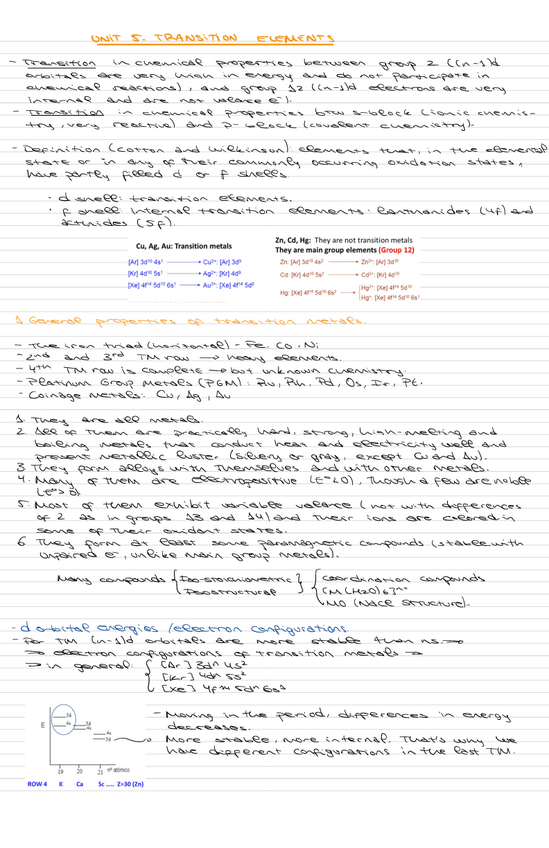 UNIT 5. TRANSITION ELEMENTS
- Transition in chemical properties between group 2 ((n-1)d
orbitals are very high in energy and do not participate in
chemical reactions), and group 12 ((n-1)d electrons are very
internal and are not valence e⁻).
- Transition in chemical properties btw s-block (ionic chemis-
try, very reactive) and p-block (covalent chemistry).
- Definition (Cotton and Wilkinson): elements that, in the elemental
state or in any of their commonly occurring oxidation states,
have partly filled d or f shells
· d shell: transition elements.
· f shell: internal transition elements: lanthanides (4f) and
actinides (5f).
Cu, Ag, Au: Transition metals
[Ar] 3d¹⁰ 4s¹ → Cu²⁺: [Ar] 3d⁹
[Kr] 4d¹⁰ 5s¹ → Ag²⁺: [Kr] 4d⁹
[Xe] 4f¹⁴ 5d¹⁰ 6s¹ → Au³⁺: [Xe] 4f¹⁴ 5d⁸
Zn, Cd, Hg: They are not transition metals
They are main group elements (Group 12)
Zn: [Ar] 3d¹⁰ 4s² → Zn²⁺: [Ar] 3d¹⁰
Cd: [Kr] 4d¹⁰ 5s² → Cd²⁺: [Kr] 4d¹⁰
Hg: [Xe] 4f¹⁴ 5d¹⁰ 6s² → Hg²⁺: [Xe] 4f¹⁴ 5d¹⁰
Hg⁺: [Xe] 4f¹⁴ 5d¹⁰ 6s¹
1. General properties of transition metals.
- The iron triad (horizontal) - Fe, Co, Ni
- 2nd and 3rd TM row → heavy elements.
- 4th TM row is complete → but unknown chemistry.
- Platinum Group Metals (PGM): Ru, Rh, Pd, Os, Ir, Pt.
- Coinage metals: Cu, Ag, Au
1. They are all metals.
2. All of them are practically hard, strong, high-melting and
boiling metals that conduct heat and electricity well and
present metallic luster (silvery or gray, except Cu and Au).
3. They form alloys with themselves and with other metals.
4. Many of them are electropositive (E°<0), though a few are noble
(E°>0).
5. Most of them exhibit variable valence (not with differences
of 2 as in groups 13 and 14) and their ions are colored in
some of their oxidant states.
6. They form at least some paramagnetic compounds (stable with
unpaired e⁻, unlike main group metals).
Many compounds { Iso-stoichiometric } { coordination compounds
Isostructural [M(H2O)6]ⁿ⁺
MO (NaCl structure).
- d orbital energies / electron configurations.
- For TM (n-1)d orbitals are more stable than ns. ⇒
⇒ electron configurations of transition metals ⇒
⇒ in general: { [Ar] 3dⁿ 4s²
[Kr] 4dⁿ 5s²
[Xe] 4f¹⁴ 5dⁿ 6s²
E
3d
4s
3d
4s
4s
3d
19 20 21 nº atómico
ROW 4 K Ca Sc .... Z=30 (Zn)
- Moving in the period, differences in energy
decreases.
More stable, more internal. That's why we
have different configurations in the last TM.